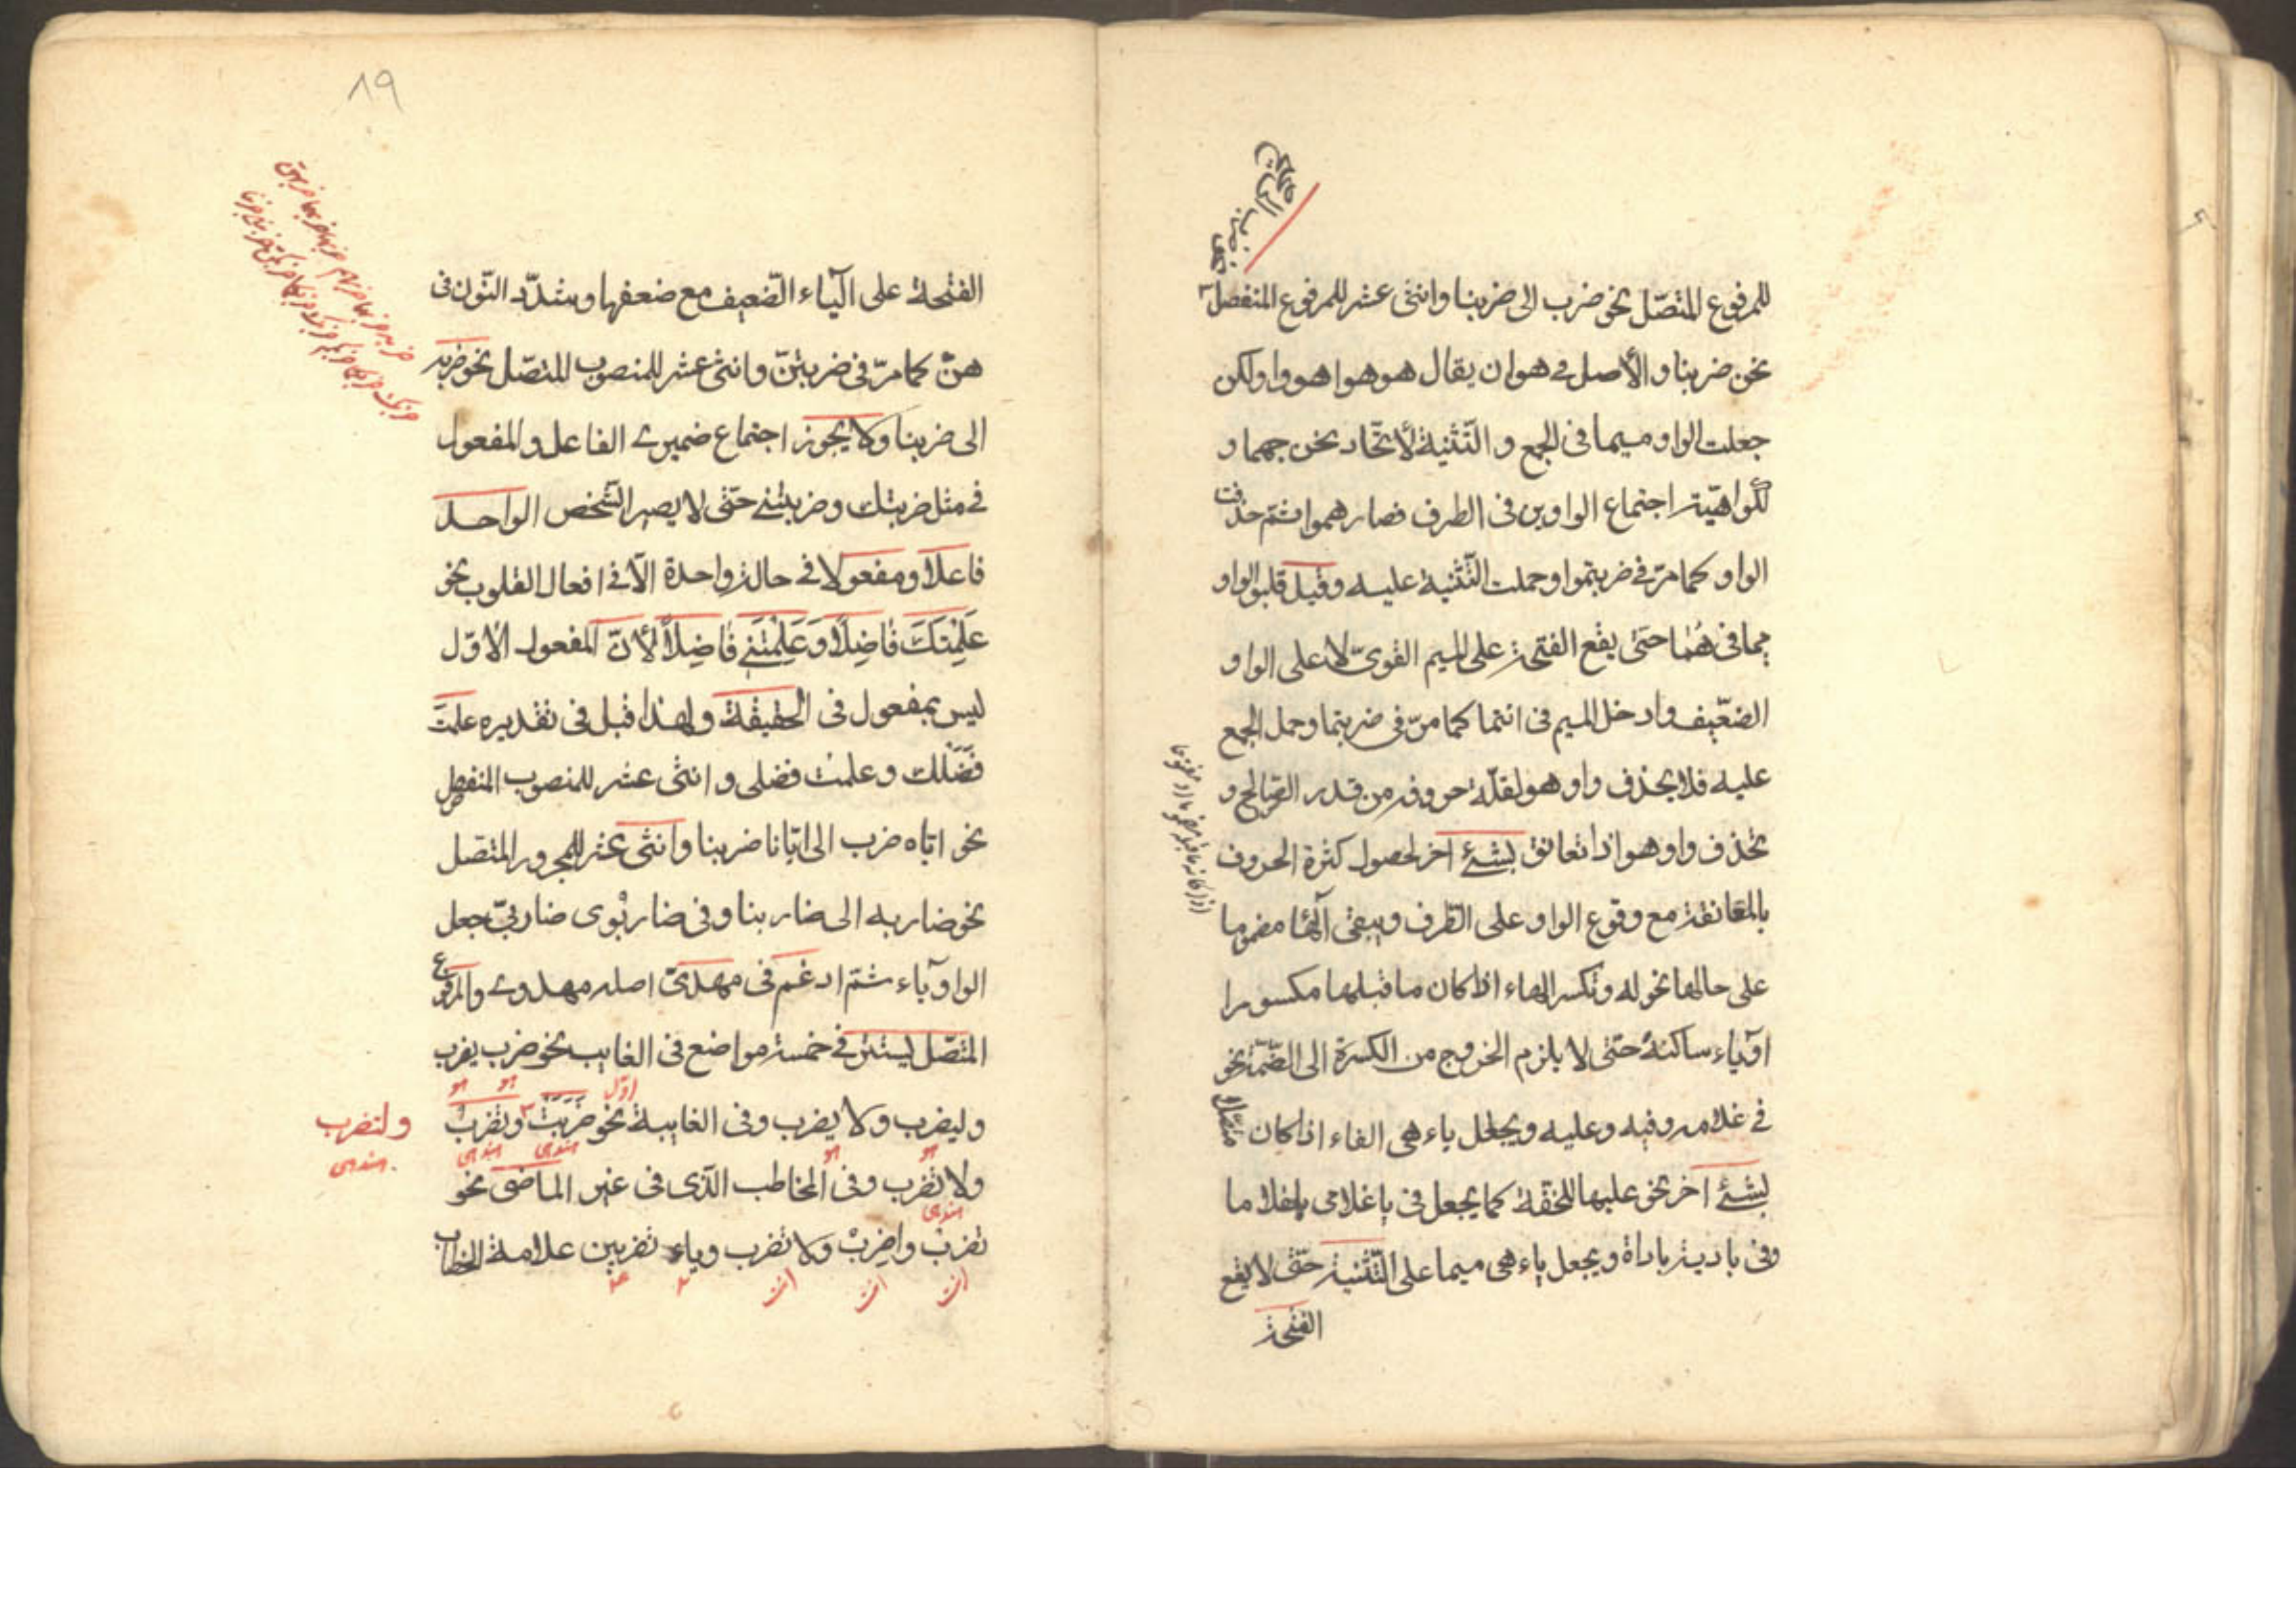 للمرفوع المتصّل نحو ضرب الى ضربنا واثنى عشر للمرفوع المنفصل
نحن ضربنا والأصل فى هوان يقال هو هوا هووا ولكن
جعلت الواو ميما فى الجمع و التّثنية لأتّحاد مخرجهما و
لكواهيّة اجتماع الواوين فى الطرف فصار هموا ثمّ حذفت
الواو كما مرّ فى ضربتموا وحملت التّثنية عليه وقيل قلبوا الواو
ميما فى هُمٰا حتىٰ يقع الفتحة على الميم القوىّ لا على الواو
الضعّيف وادخل الميم فى انتما كما مرّ فى ضربتما وحمل الجمع
عليه فلا يحذف واو هو لقلّة حروفه من قدر الصّالح و
تحذف واو هو اذا تعانق بشئ اخر لحصول كثرة الحروف
بالمعانقة مع وقوع الواو على الطّرف ويبقى آلهٰا مضموما
على حالها نحو له وتكسر الهاء اذا كان ما قبلها مكسورا
اوياء ساكنة حتىّ لا يلزم الخروج من الكسرة الى الضّمّة نحو
فى غلامه وفيه وعليه ويجعل ياء هى الفاء اذا كان
بشئ اخر نحو عليها للخفّة كما يجعل فى يا غلامى يا غلاما
وفى بادية باداة ويجعل ياء هى ميما على التّثنية حتىّ لا يقع
الفتحة
٨٩
الفتحة على الياء الضّعيف مع ضعفها وشدّد النّون فى
هنّ كما مرّ فى ضربتنّ واثنى عشر للمنصوب المتصّل نحو ضربه
الى ضربنا ولا يجوز اجتماع ضميرى الفاعل والمفعول
فى مثل ضربتك وضربتنى حتىّ لا يصير الشّخص الواحد
فاعلا ومفعولا فى حالة واحدة الّا فى افعال القلوب نحو
عَلِمْتَكَ فٰاضِلًا وَعَلِمْتَنى فٰاضِلًا لأنّ المفعول الأوّل
ليس بمفعول فى الحقيقة ولهذا قيل فى تقديره علمتَ
فَضْلَك وعلمتْ فضلى واثنى عشر للمنصوب المنفصل
نحو ايّاه ضرب الى ايّانا ضربنا واثنى عشر للمجرور المتّصل
نحو ضاربه الى ضاربنا وفى ضاربْوى ضاربىّ جعل
الواو ياء ثمّ ادغم فى مهدىّ اصله مهدوى والمرفوع
المتصّل يستتر فى خمسة مواضع فى الغايب نحو ضرب يضرب
وليضرب ولا يضرب وفى الغايبة نحو ضَرَبَتْ وتضربُ
ولتضرب
ولا تضرب وفى المخاطب الّذى فى غير الماضى نحو
تضربْ واضربْ ولا تضرب وياء تضربين علامة الخطاب